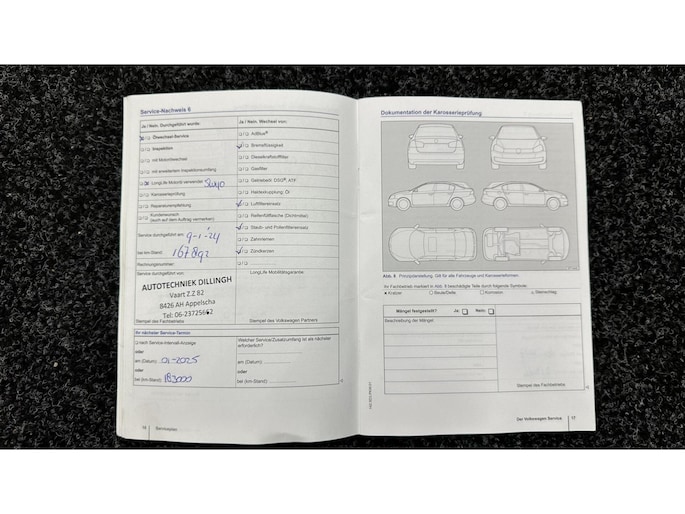 Service-Nachweis 6
Ja / Nein, Durchgeführt wurde:
Ölwechsel-Service
Inspektion
mit Motorölwechsel
mit erweitertem Inspektionsumfang
LongLife Motoröl verwendet 5W40
Karosserieprüfung
Reparaturempfehlung
Kundenwunsch
(auch auf dem Auftrag vermerken)
Service durchgeführt am: 9-1-'24
bei km-Stand:
Rechnungsnummer:
Service durchgeführt von:
AUTOTECHNIEK DILLINGH
Vaart Z.Z.82
8426 AH Appelscha
Tel: 06-23725662
Stempel des Fachbetriebs
Ja / Nein, Wechsel von:
AdBlue®
Bremsflüssigkeit
Dieselkraftstofffilter
Gasfilter
Getriebeöl: DSG®, ATF
Haldexkupplung: Öl
Luftfiltereinsatz
Reifenfüllflasche (Dichtmittel)
Staub- und Pollenfiltereinsatz
Zahnriemen
Zündkerzen
LongLife Mobilitätsgarantie
Stempel des Volkswagen Partners
Ihr nächster Service-Termin:
nach Service-Intervall-Anzeige
oder
am (Datum): 01-2025
oder
bei (km-Stand): 183000
Welcher Service/Zusatzumfang ist als nächster
erforderlich?
am (Datum):
oder
bei (km-Stand):
16 Serviceplan
Dokumentation der Karosserieprüfung
Abb. 8 Prinzipdarstellung. Gilt für alle Fahrzeuge und Karosserieformen.
Ihr Fachbetrieb markiert in Abb. 8 beschädigte Teile durch folgende Symbole:
Kratzer Beule/Delle Korrosion Steinschlag
Mängel festgestellt? Ja: Nein:
Beschreibung der Mängel:
Stempel des Fachbetriebs
Der Volkswagen Service 17